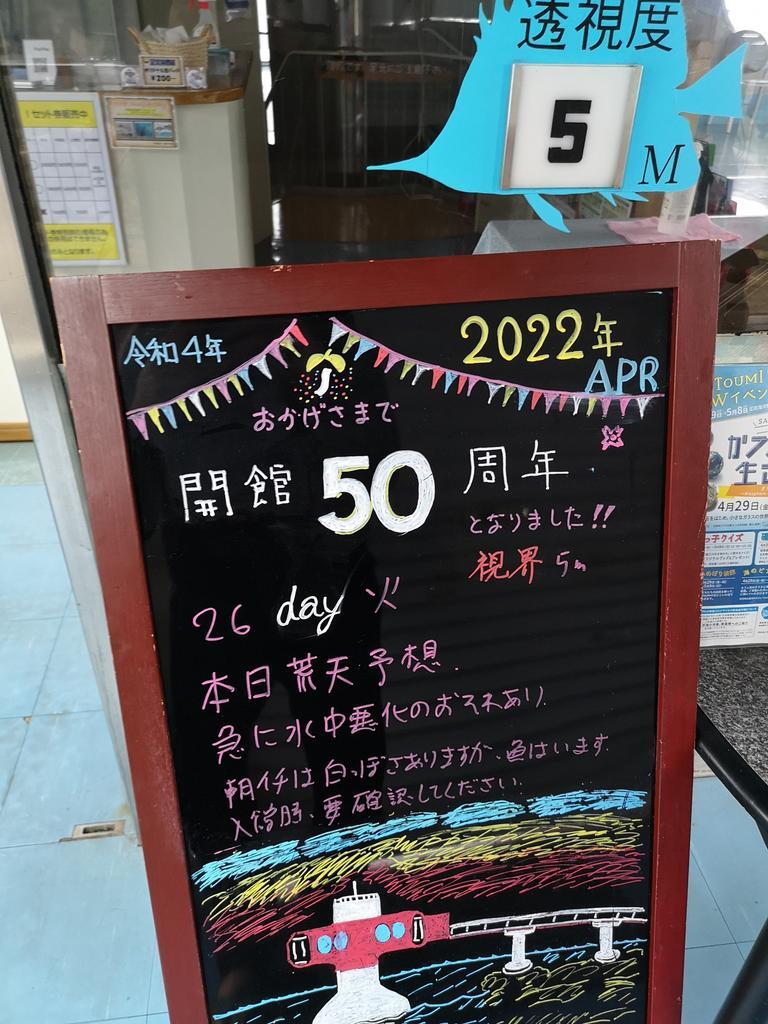 透視度
5
M
1セット券販売中
¥200-
令和4年
2022年
APR
おかげさまで
開館50周年
となりました!!
視界5m
26 day 火
本日荒天予想.
急に水中悪化のおそれあり.
朝イチは白っぽさありますが、魚はいます.
入館時、要確認してください.
TOUMI
Wイベン
5月8日
ガラ
生き
4月29日(金
っ子クイズ